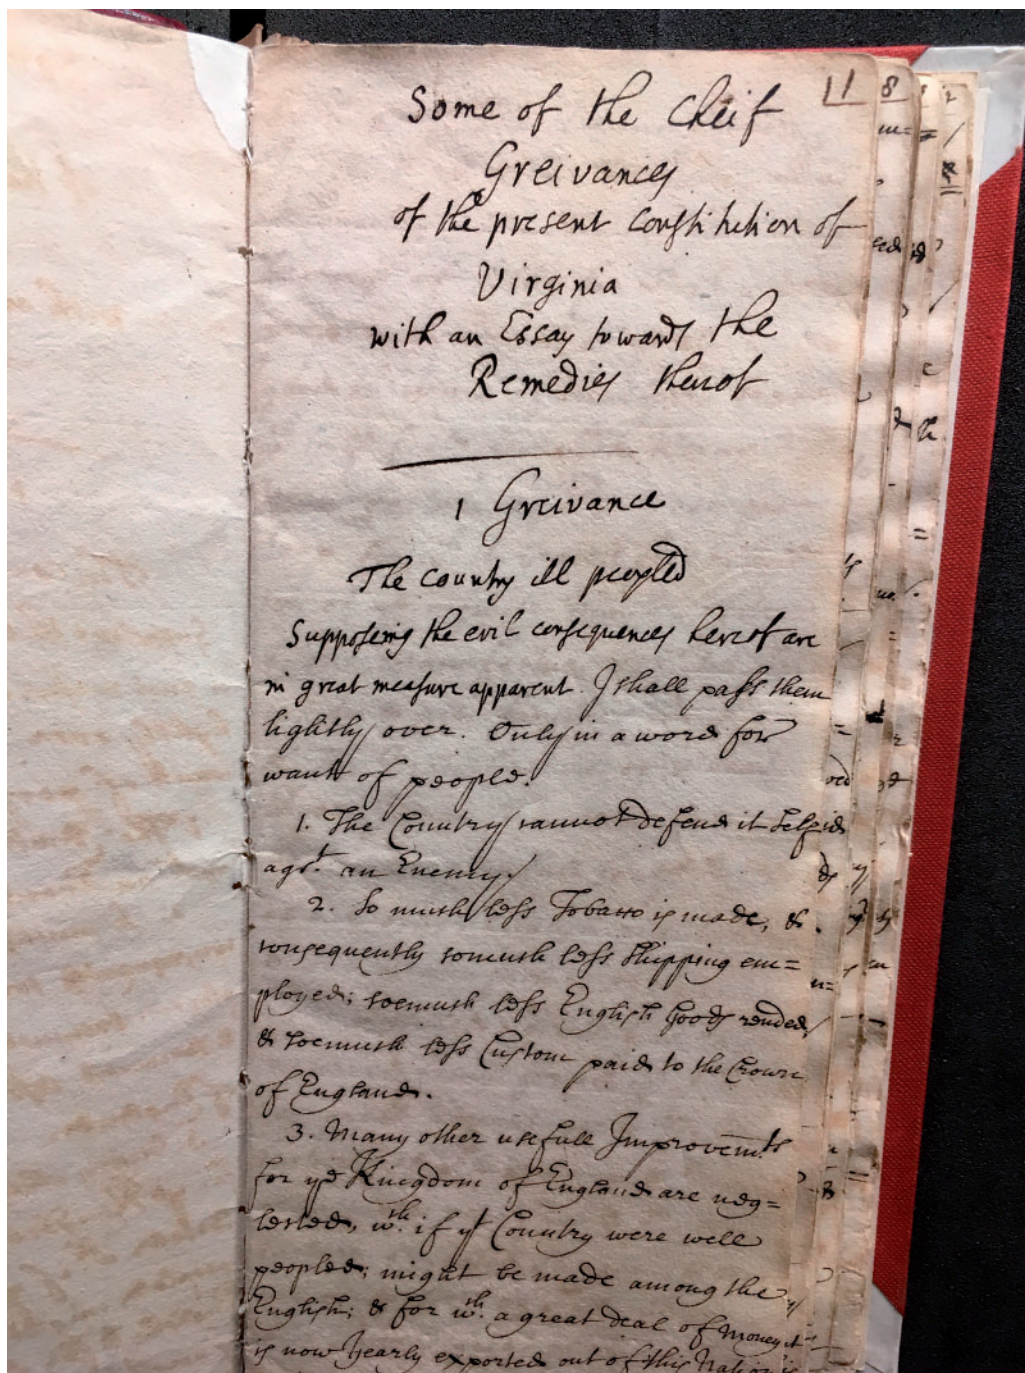 11
Some of the Cheif
Greivances
of the present constitution of
Virginia
with an Essay towards the
Remedies thereof
1 Greivance
The country ill peopled
Supposeing the evil consequences hereof are
in great measure apparent. I shall pass them
lightly over. Only in a word for
want of people.
1. The Country cannot defend it self
agst. an Enemy.
2. So much less Tobacco is made, &
consequently somuch less Shipping em=
ployed; soemuch less English Goods vended
& soemuch less Custom paid to the Crown
of England.
3. Many other usefull Improvemts
for ye Kingdom of England are neg=
lected, wch. if yt Country were well
peopled; might be made among the
English; & for wch. a great deal of Money
is now Yearly exported out of this Nation
8